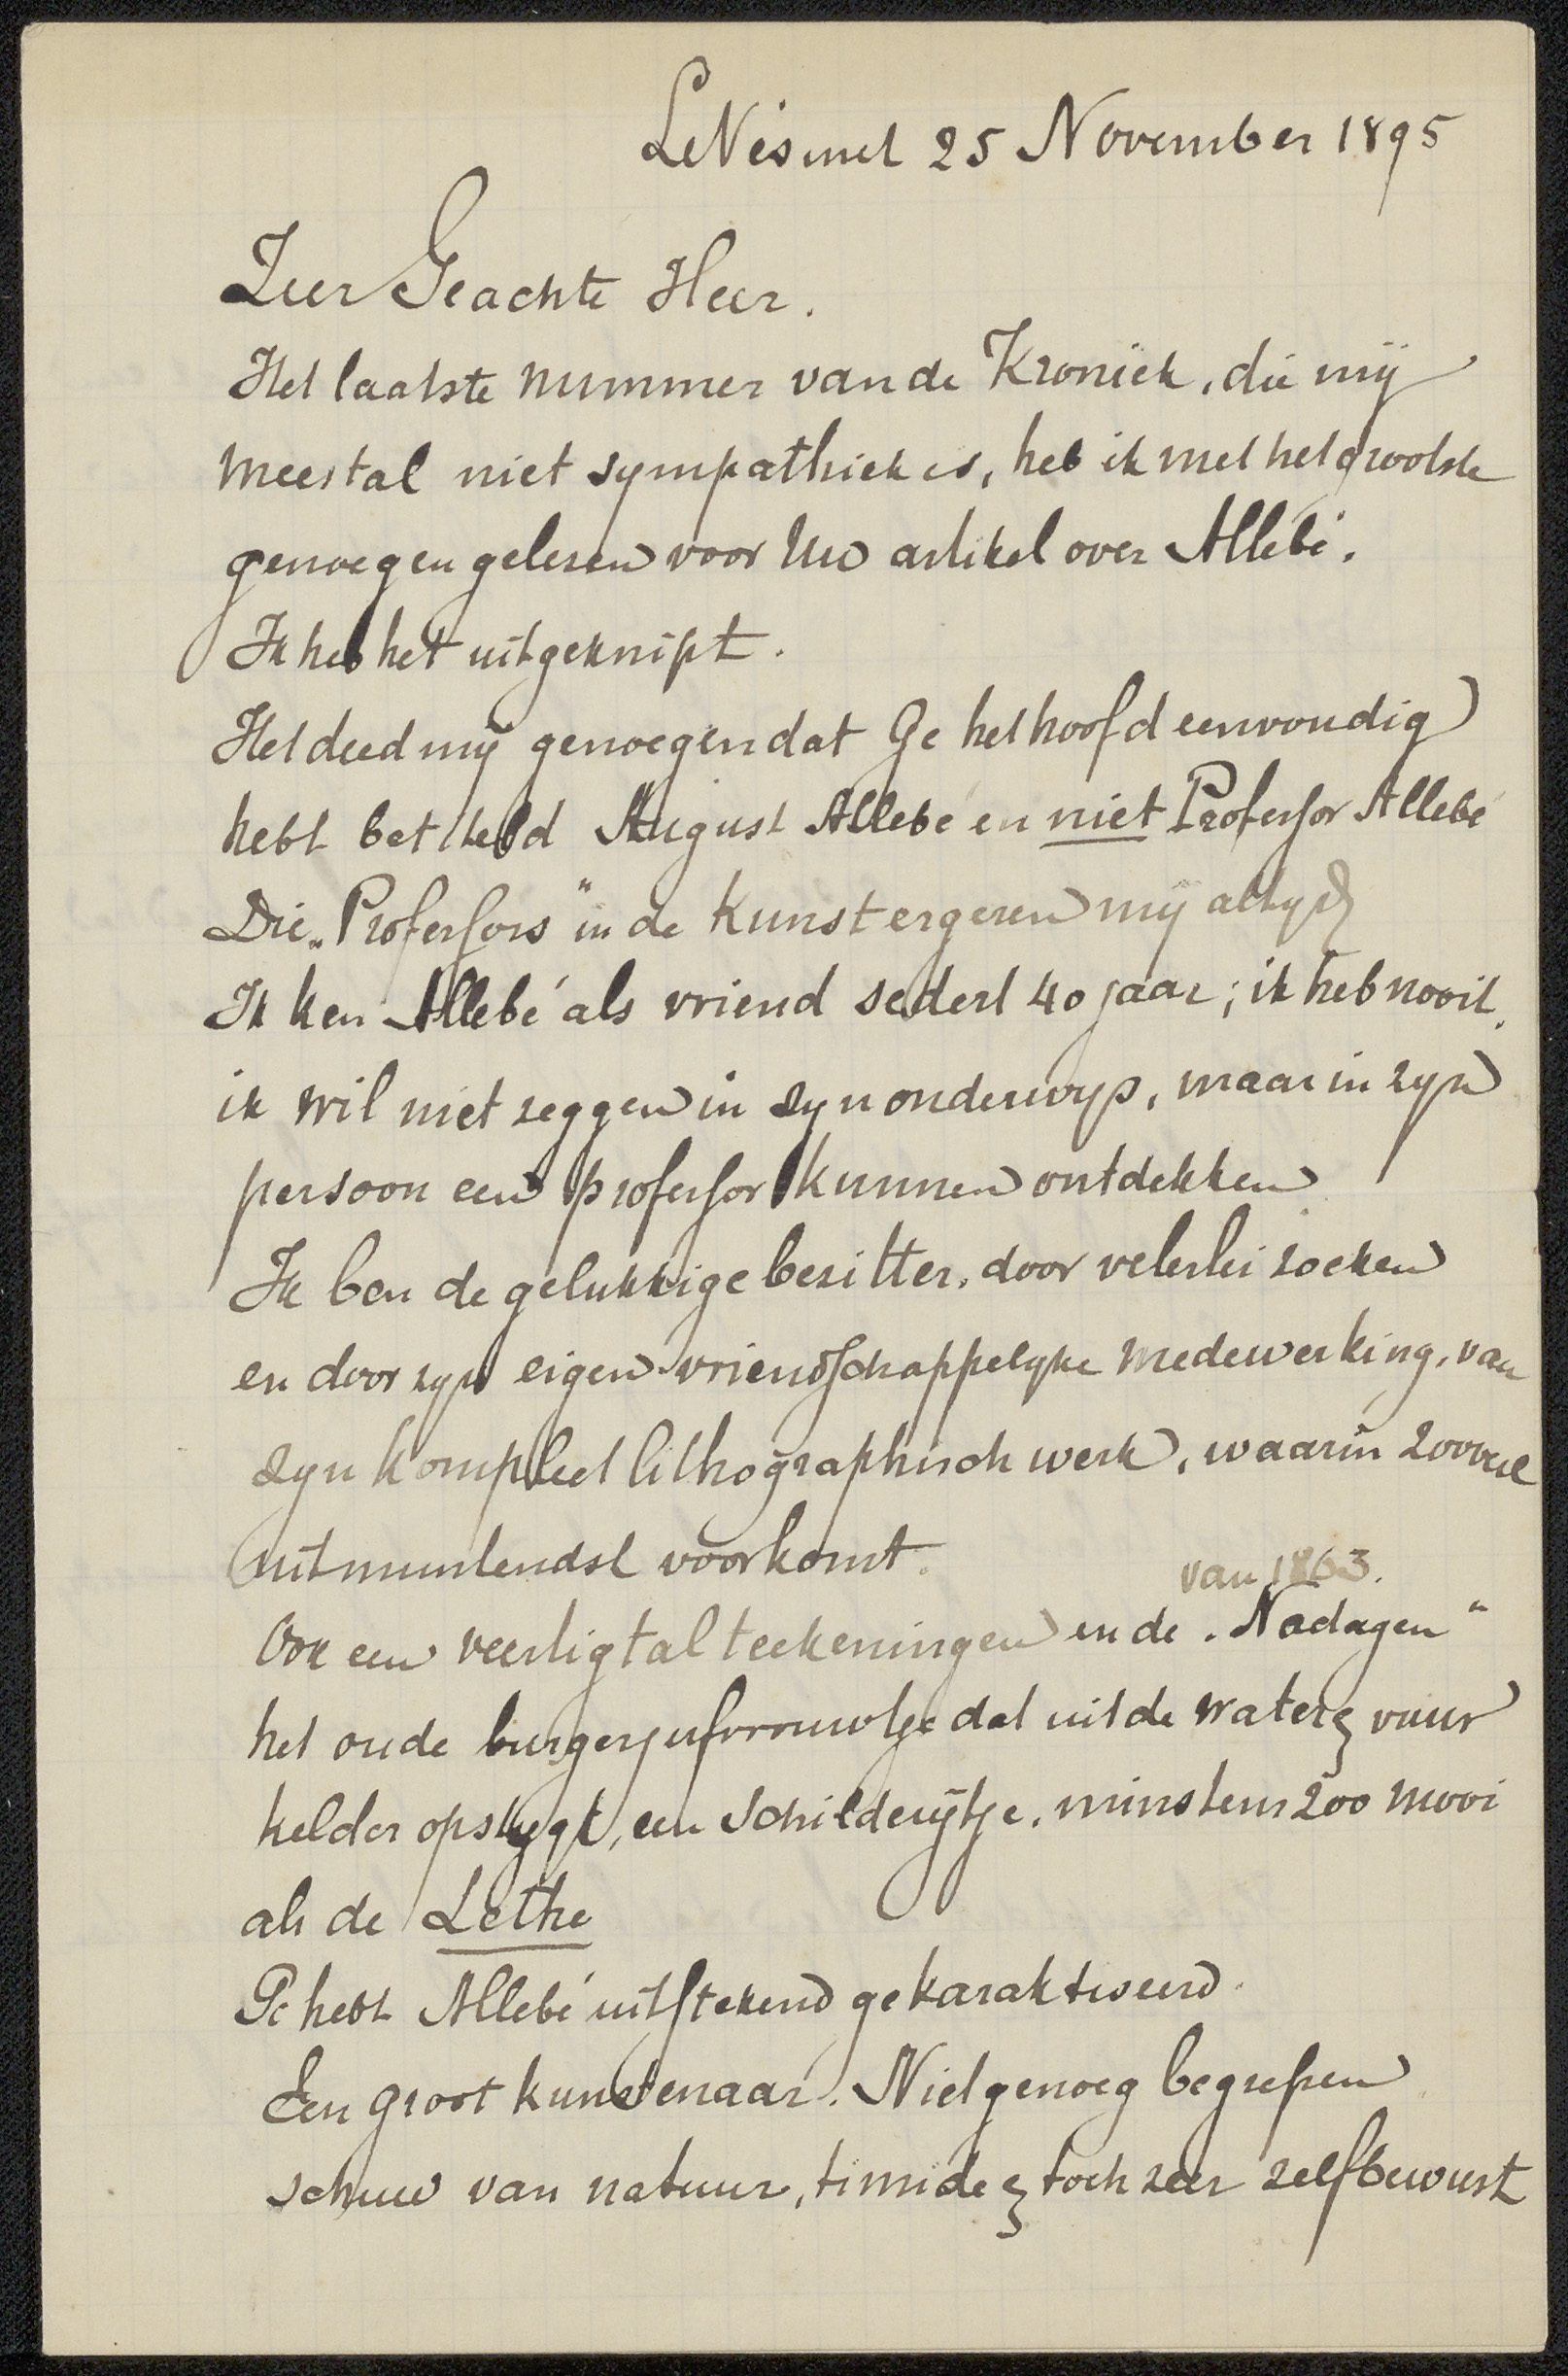 Le Vésinet 25 November 1895
Zeer Geachte Heer.
Het laatste nummer van de Kroniek, die mij
meestal niet sympathiek is, heb ik met het grootste
genoegen gelezen voor Uw artikel over Allebé.
Ik heb het uitgeknipt.
Het deed mij genoegen dat Ge het hoofd eenvoudig
hebt betiteld August Allebé en niet Professor Allebé
Die „Professors" in de Kunst ergeren mij altyd
Ik ken Allebé als vriend sedert 40 jaar; ik heb nooit,
ik wil niet zeggen in zyn onderwys, maar in zyn
persoon een professor kunnen ontdekken
Ik ben de gelukkige bezitter, door velerlei zoeken
en door zyn eigen vriendschappelyke medewerking, van
zyn kompleet lithographisch werk, waarin zooveel
uitmuntendst voorkomt.
van 1863.
Ook een veertigtal teekeningen en de „Nadagen"
het oude burgerjufvrouwtje dat uit de water & vuur
kelder opstygt, een schilderijtje, minstens zoo mooi
als de Lethe
Ge hebt Allebé uitstekend gekaraktiseerd.
Een groot kunstenaar. Niet genoeg begrepen
schuw van natuur, timide & toch zeer zelfbewust